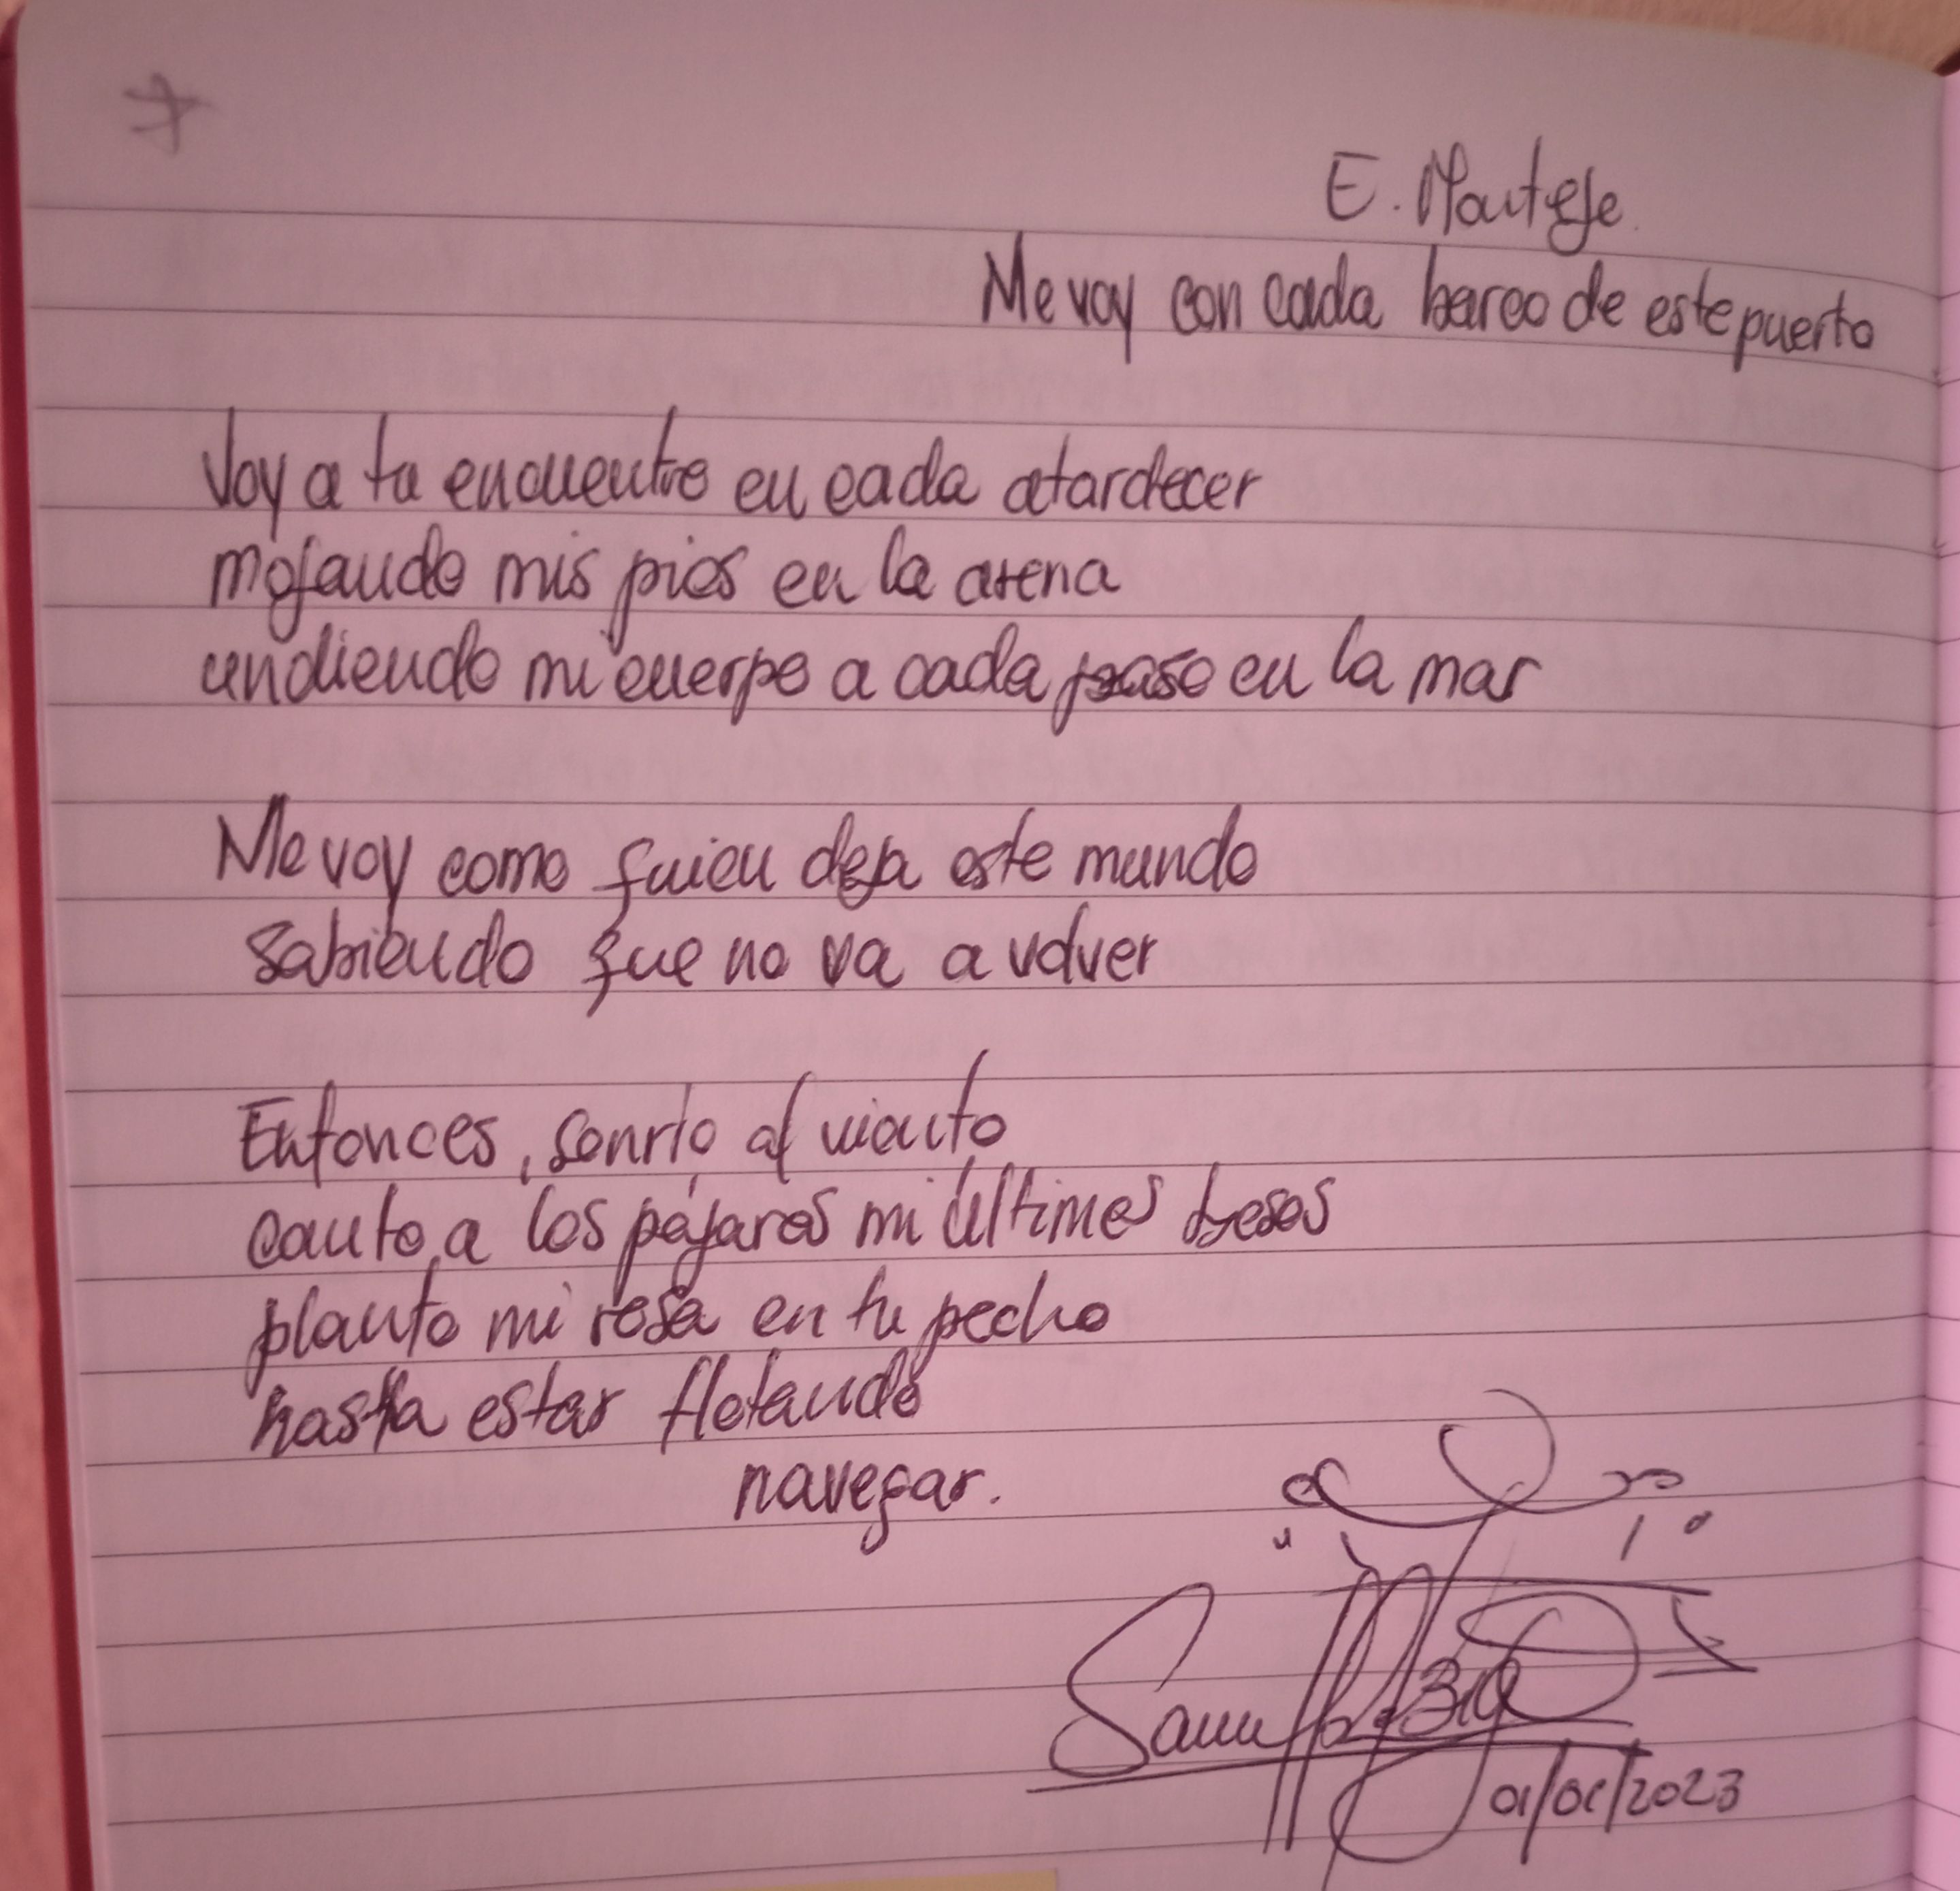 E. Montejo
Me voy con cada barco de este puerto
Voy a tu encuentro en cada atardecer
mojando mis pies en la arena
undiendo mi cuerpo a cada paso en la mar
Me voy como quien deja este mundo
sabiendo que no va a volver
Entonces, sonrío al viento
canto a los pájaros mi últimos besos
planto mi rosa en tu pecho
hasta estar flotando
navegar.